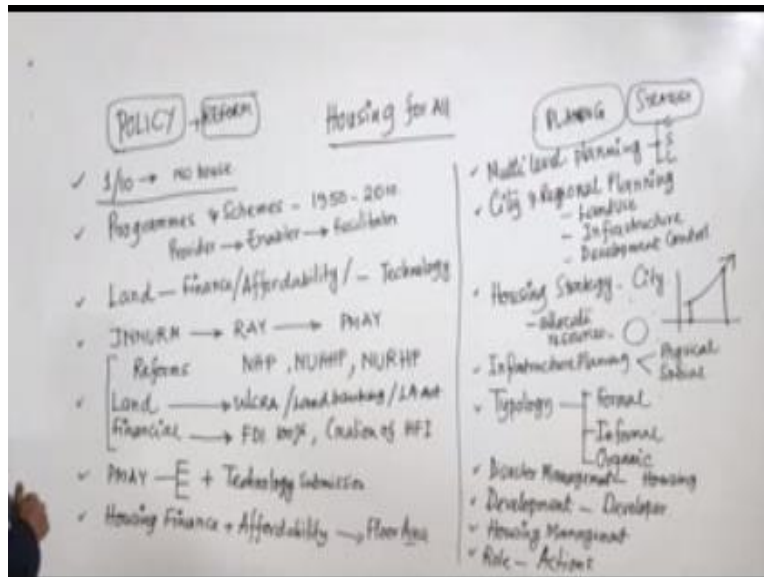 Housing for All
POLICY + REFORM
✓ 1/10 → no house
✓ Programmes & Schemes - 1950-2010
Provider → Enabler → Facilitator
✓ Land - Finance/Affordability/ - Technology
JNNURM → RAY → PMAY
Reforms NHP, NUHHP, NURHP
Land → ULCRA/Land banking/LA Act
Financial → FDI 100%, Creation of HFI
✓ PMAY - + Technology Submission
✓ Housing Finance + Affordability → Floor Area
PLANNING STRATEGY
✓ Multi level planning
✓ City & Regional Planning
- Landuse
- Infrastructure
- Development Control
Housing Strategy - City
- allocate resources
Infrastructure Planning < Physical
Social
✓ Typology - Formal
- Informal
- Organic
Disaster Management Housing
Development - Developer
✓ Housing Management
✓ Role - Actions